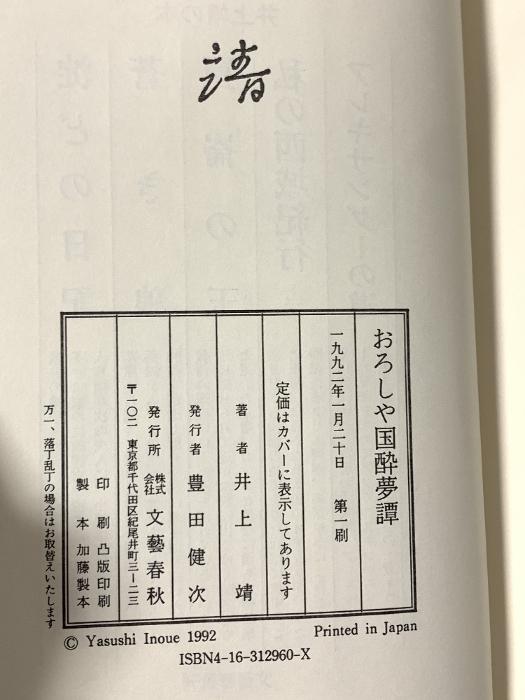 靖
おろしや国酔夢譚
一九九二年一月二十日 第一刷
定価はカバーに表示してあります
著者 井上 靖
発行者 豊田健次
発行所 株式会社 文藝春秋
〒一〇二 東京都千代田区紀尾井町三―二三
印刷 凸版印刷
製本 加藤製本
万一、落丁乱丁の場合はお取替えいたします
© Yasushi Inoue 1992 Printed in Japan
ISBN4-16-312960-X